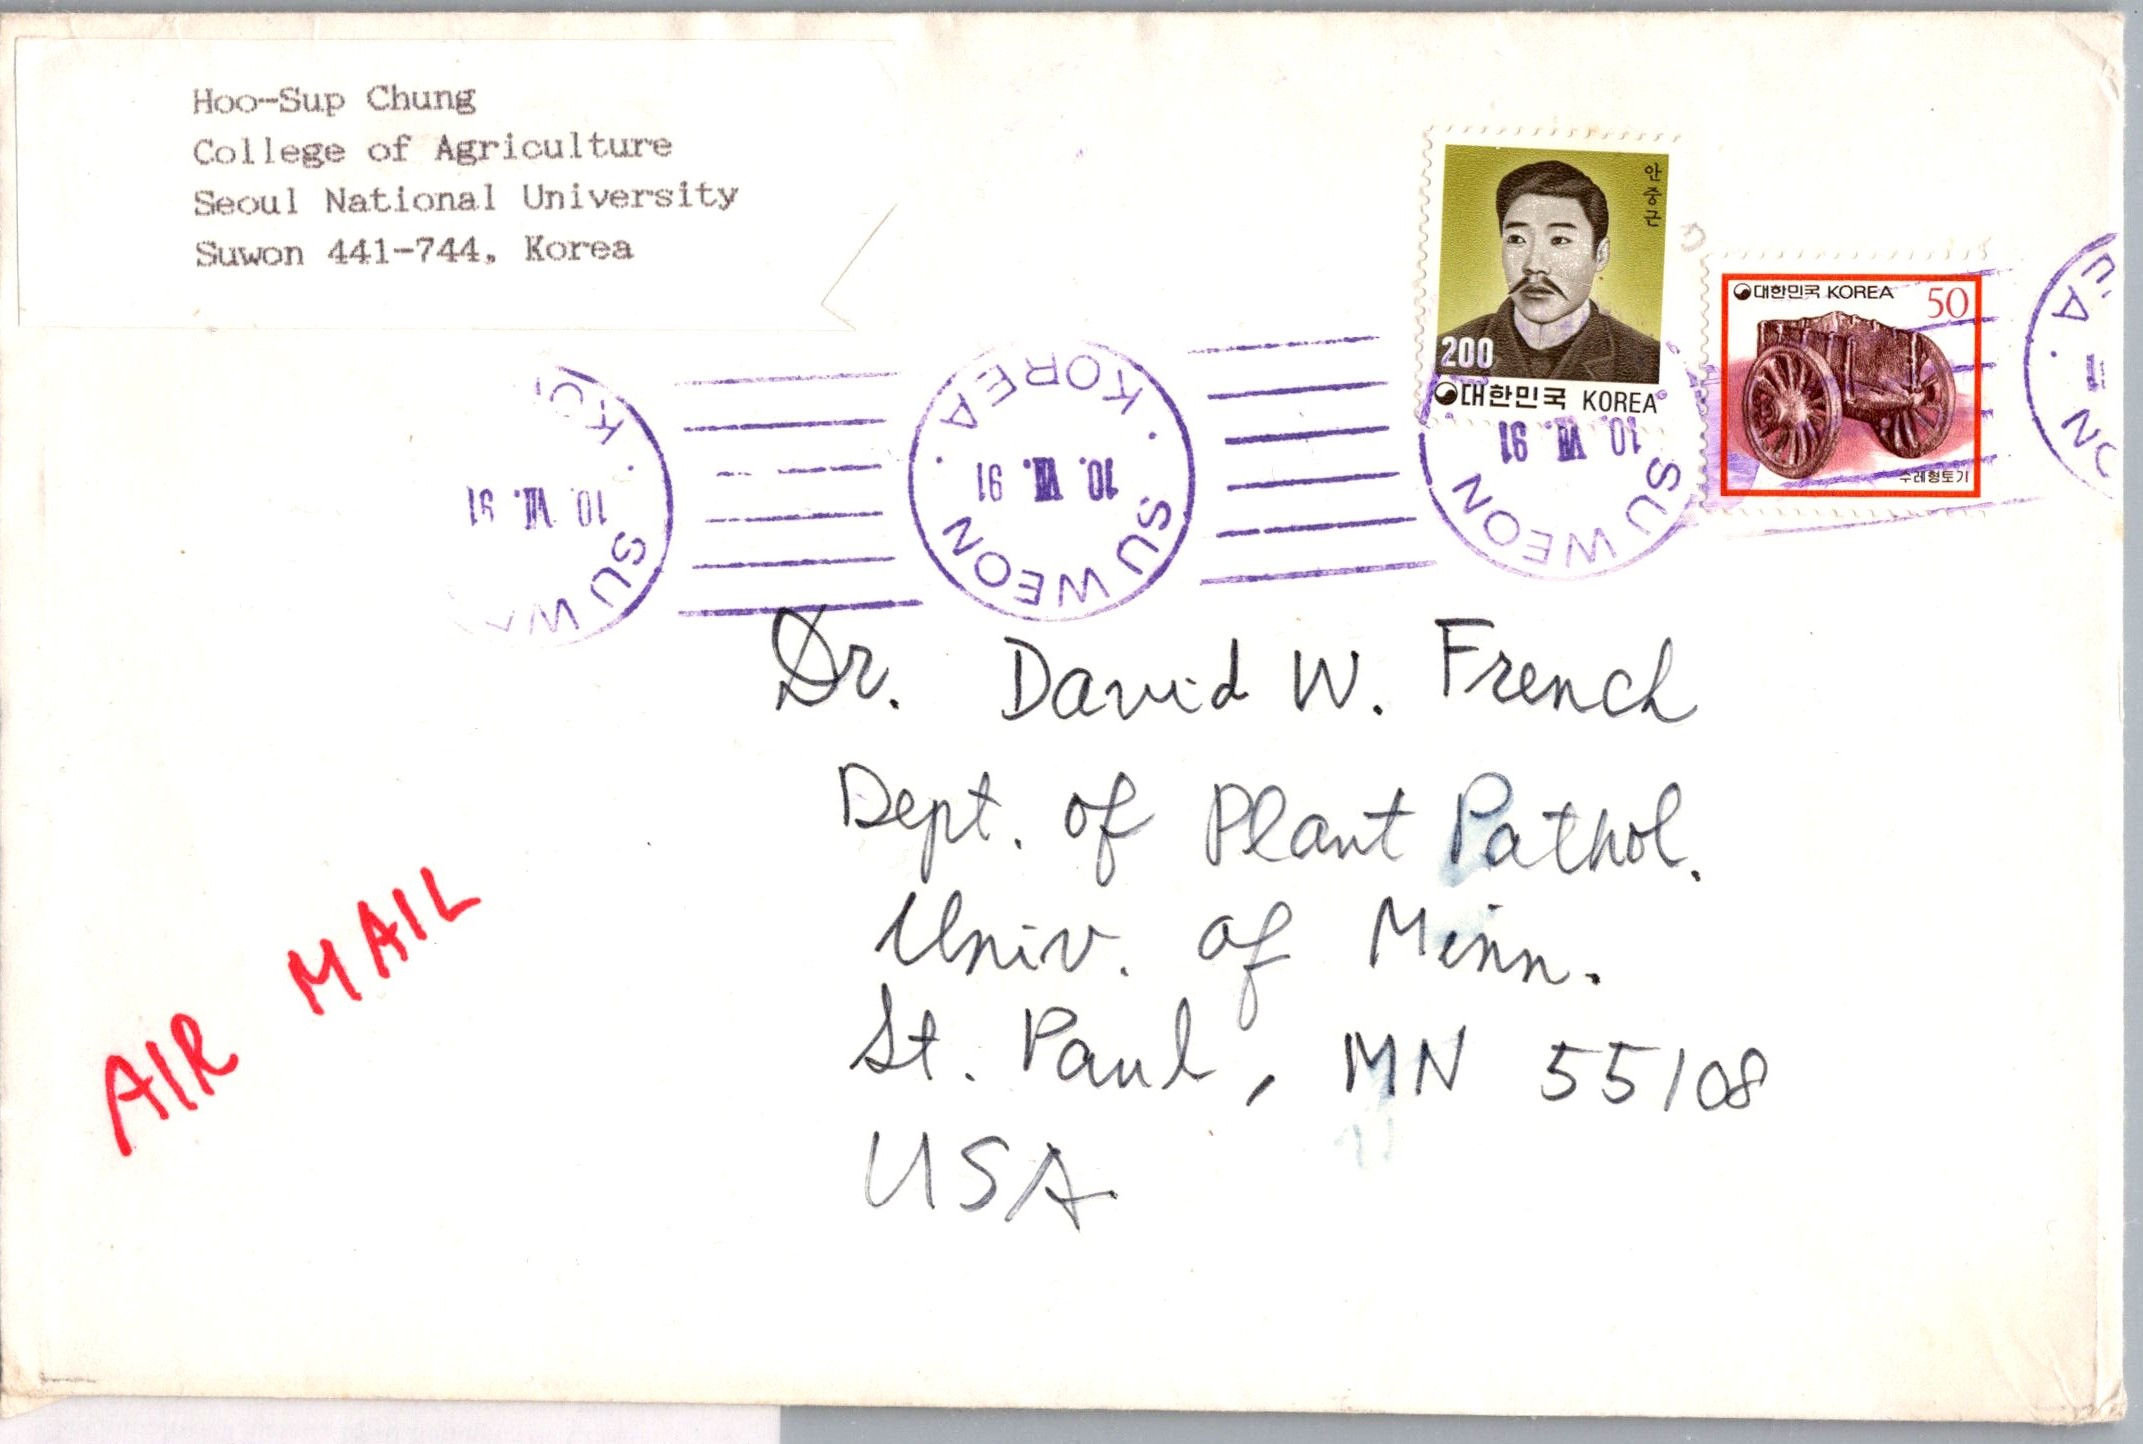 Hoo-Sup Chung
College of Agriculture
Seoul National University
Suwon 441-744, Korea
안중근
200
대한민국 KOREA
대한민국 KOREA 50
수레형토기
SU WEON · KOREA ·
10. VII. 91
SU WEON
10. VII. 91
SU W
10. VII. 91
Dr. David W. French
Dept. of Plant Pathol.
Univ. of Minn.
St. Paul, MN 55108
USA
AIR MAIL